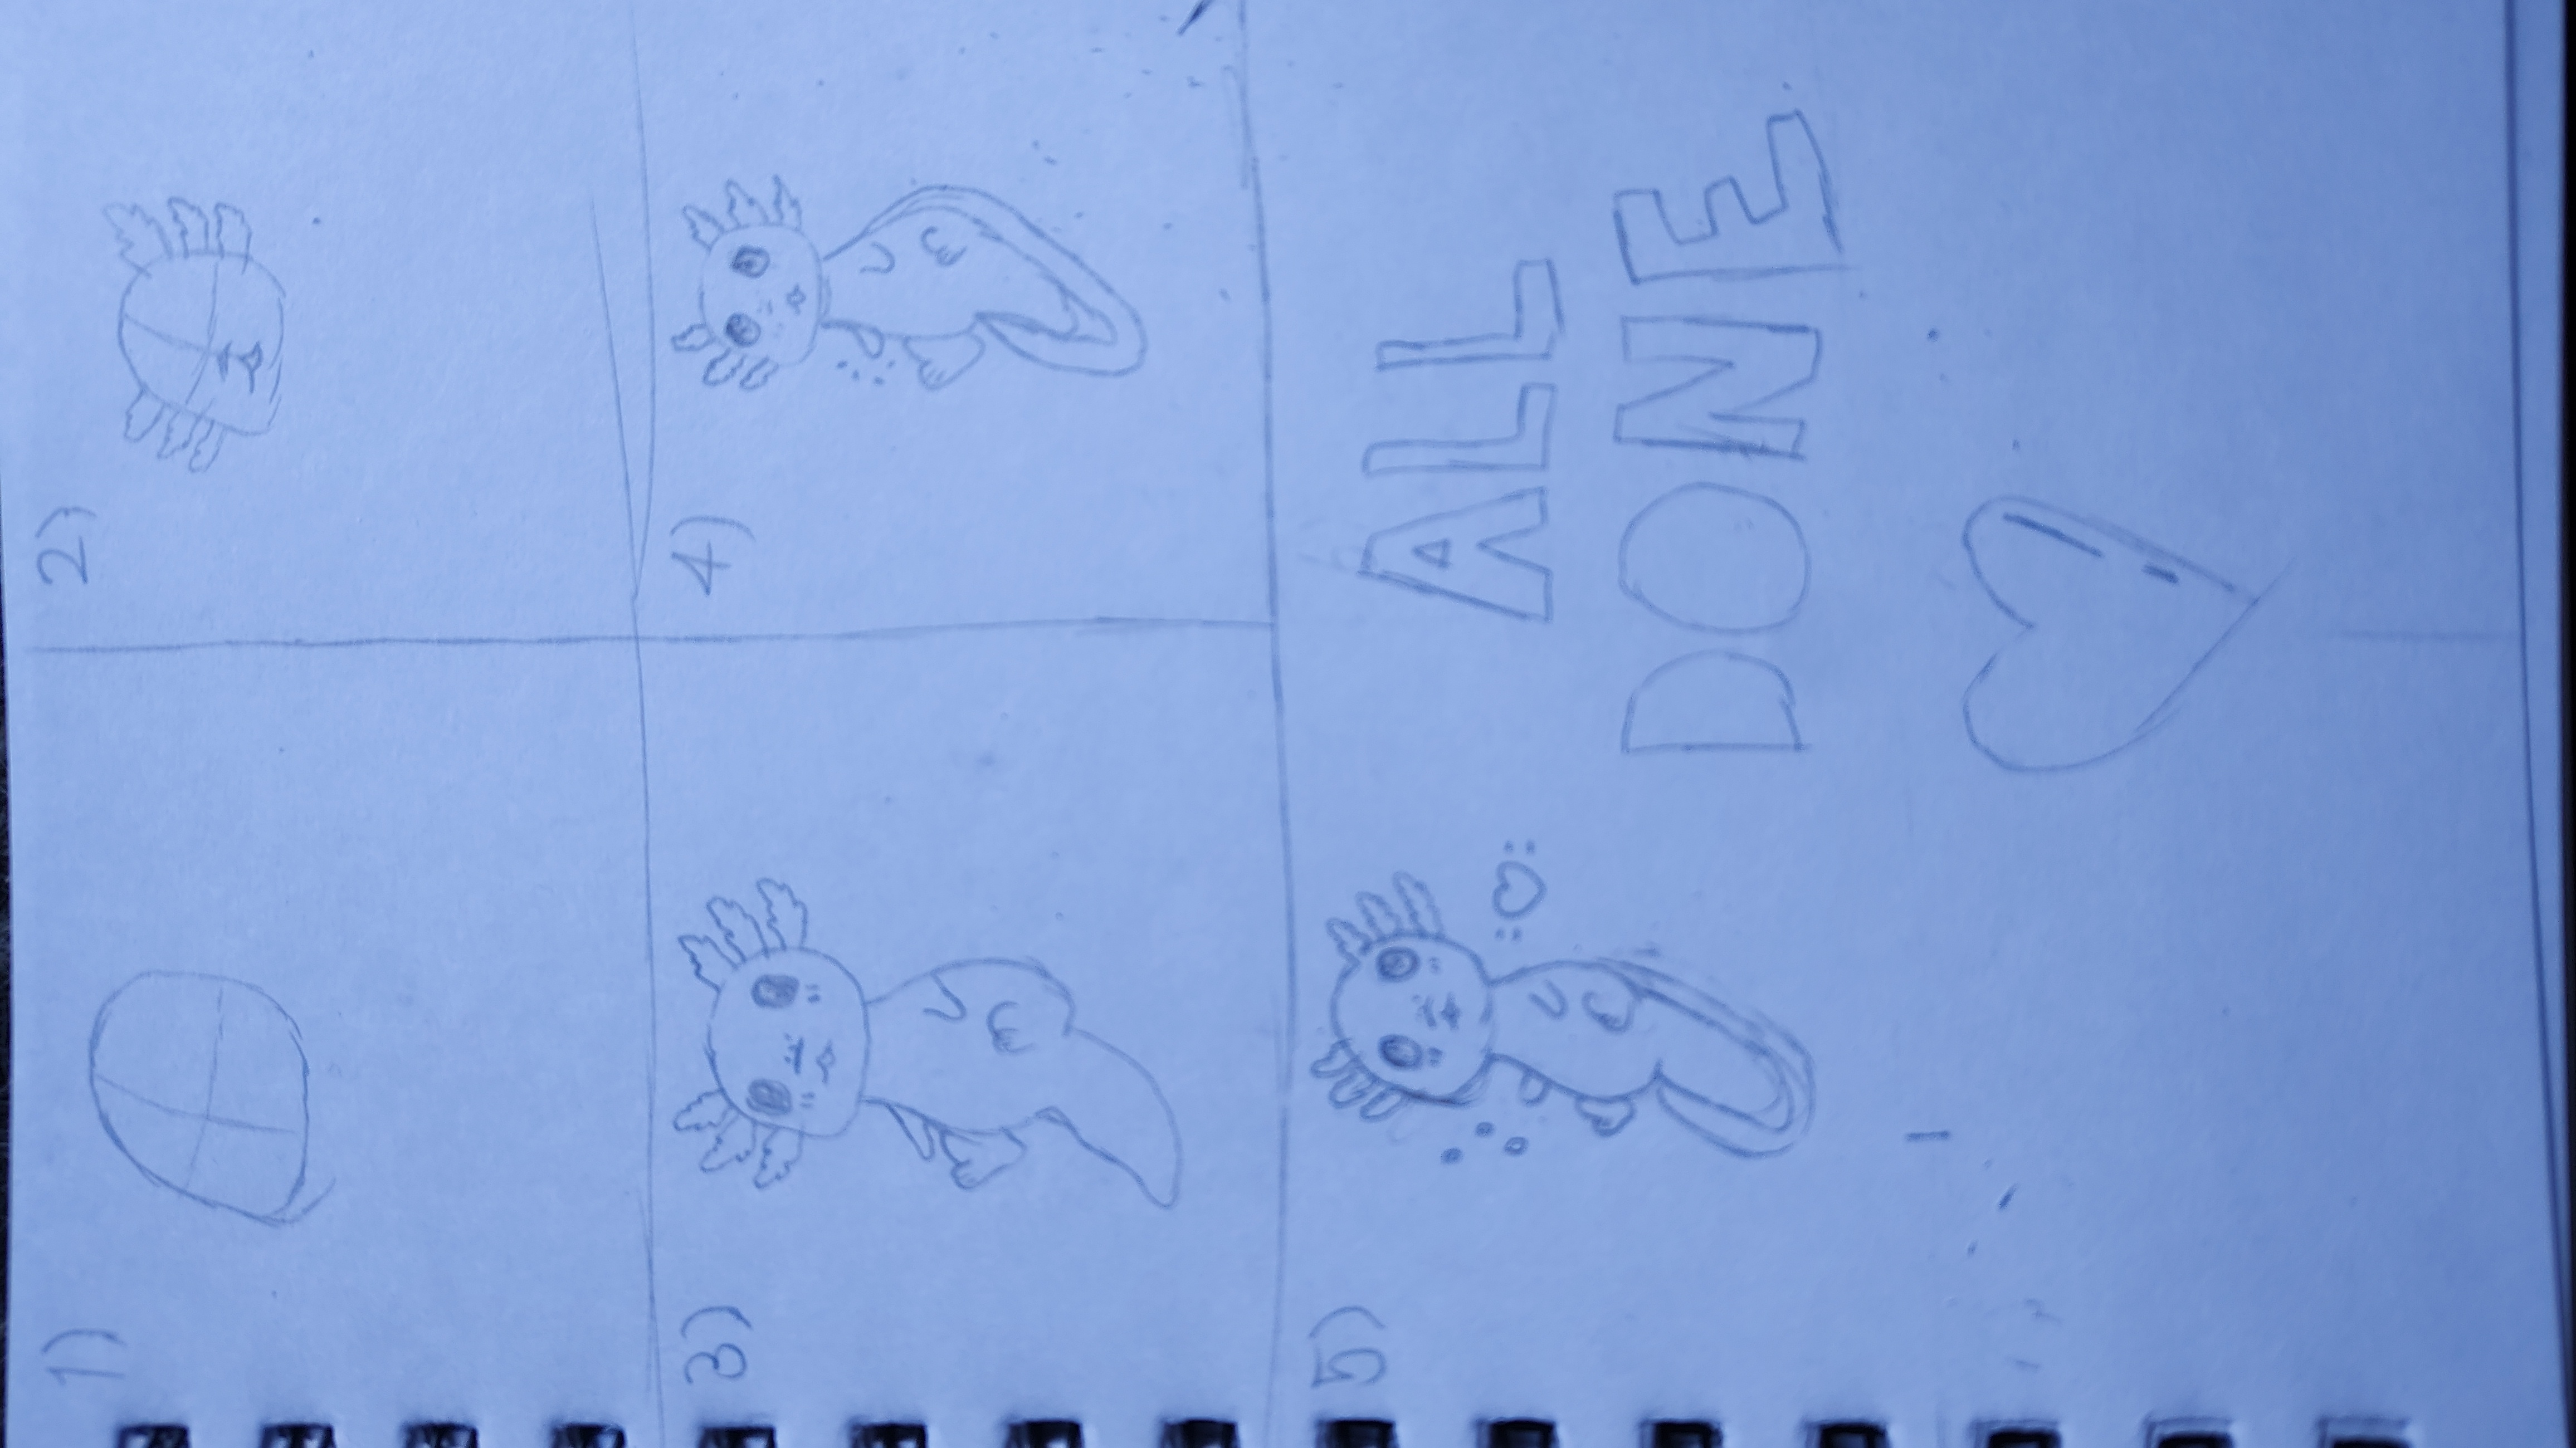 1)
2)
3)
4)
5)
ALL
DONE